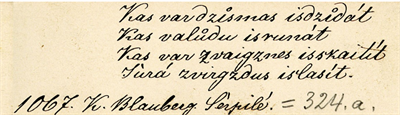 Kas var dzismas isdzidát
Kas valůdu isrunát
Kas var zvaigznes isskaitít
Jůrá zvirgzdus islasít.
1067. K. Blauberg Sērpilē. = 324.a.